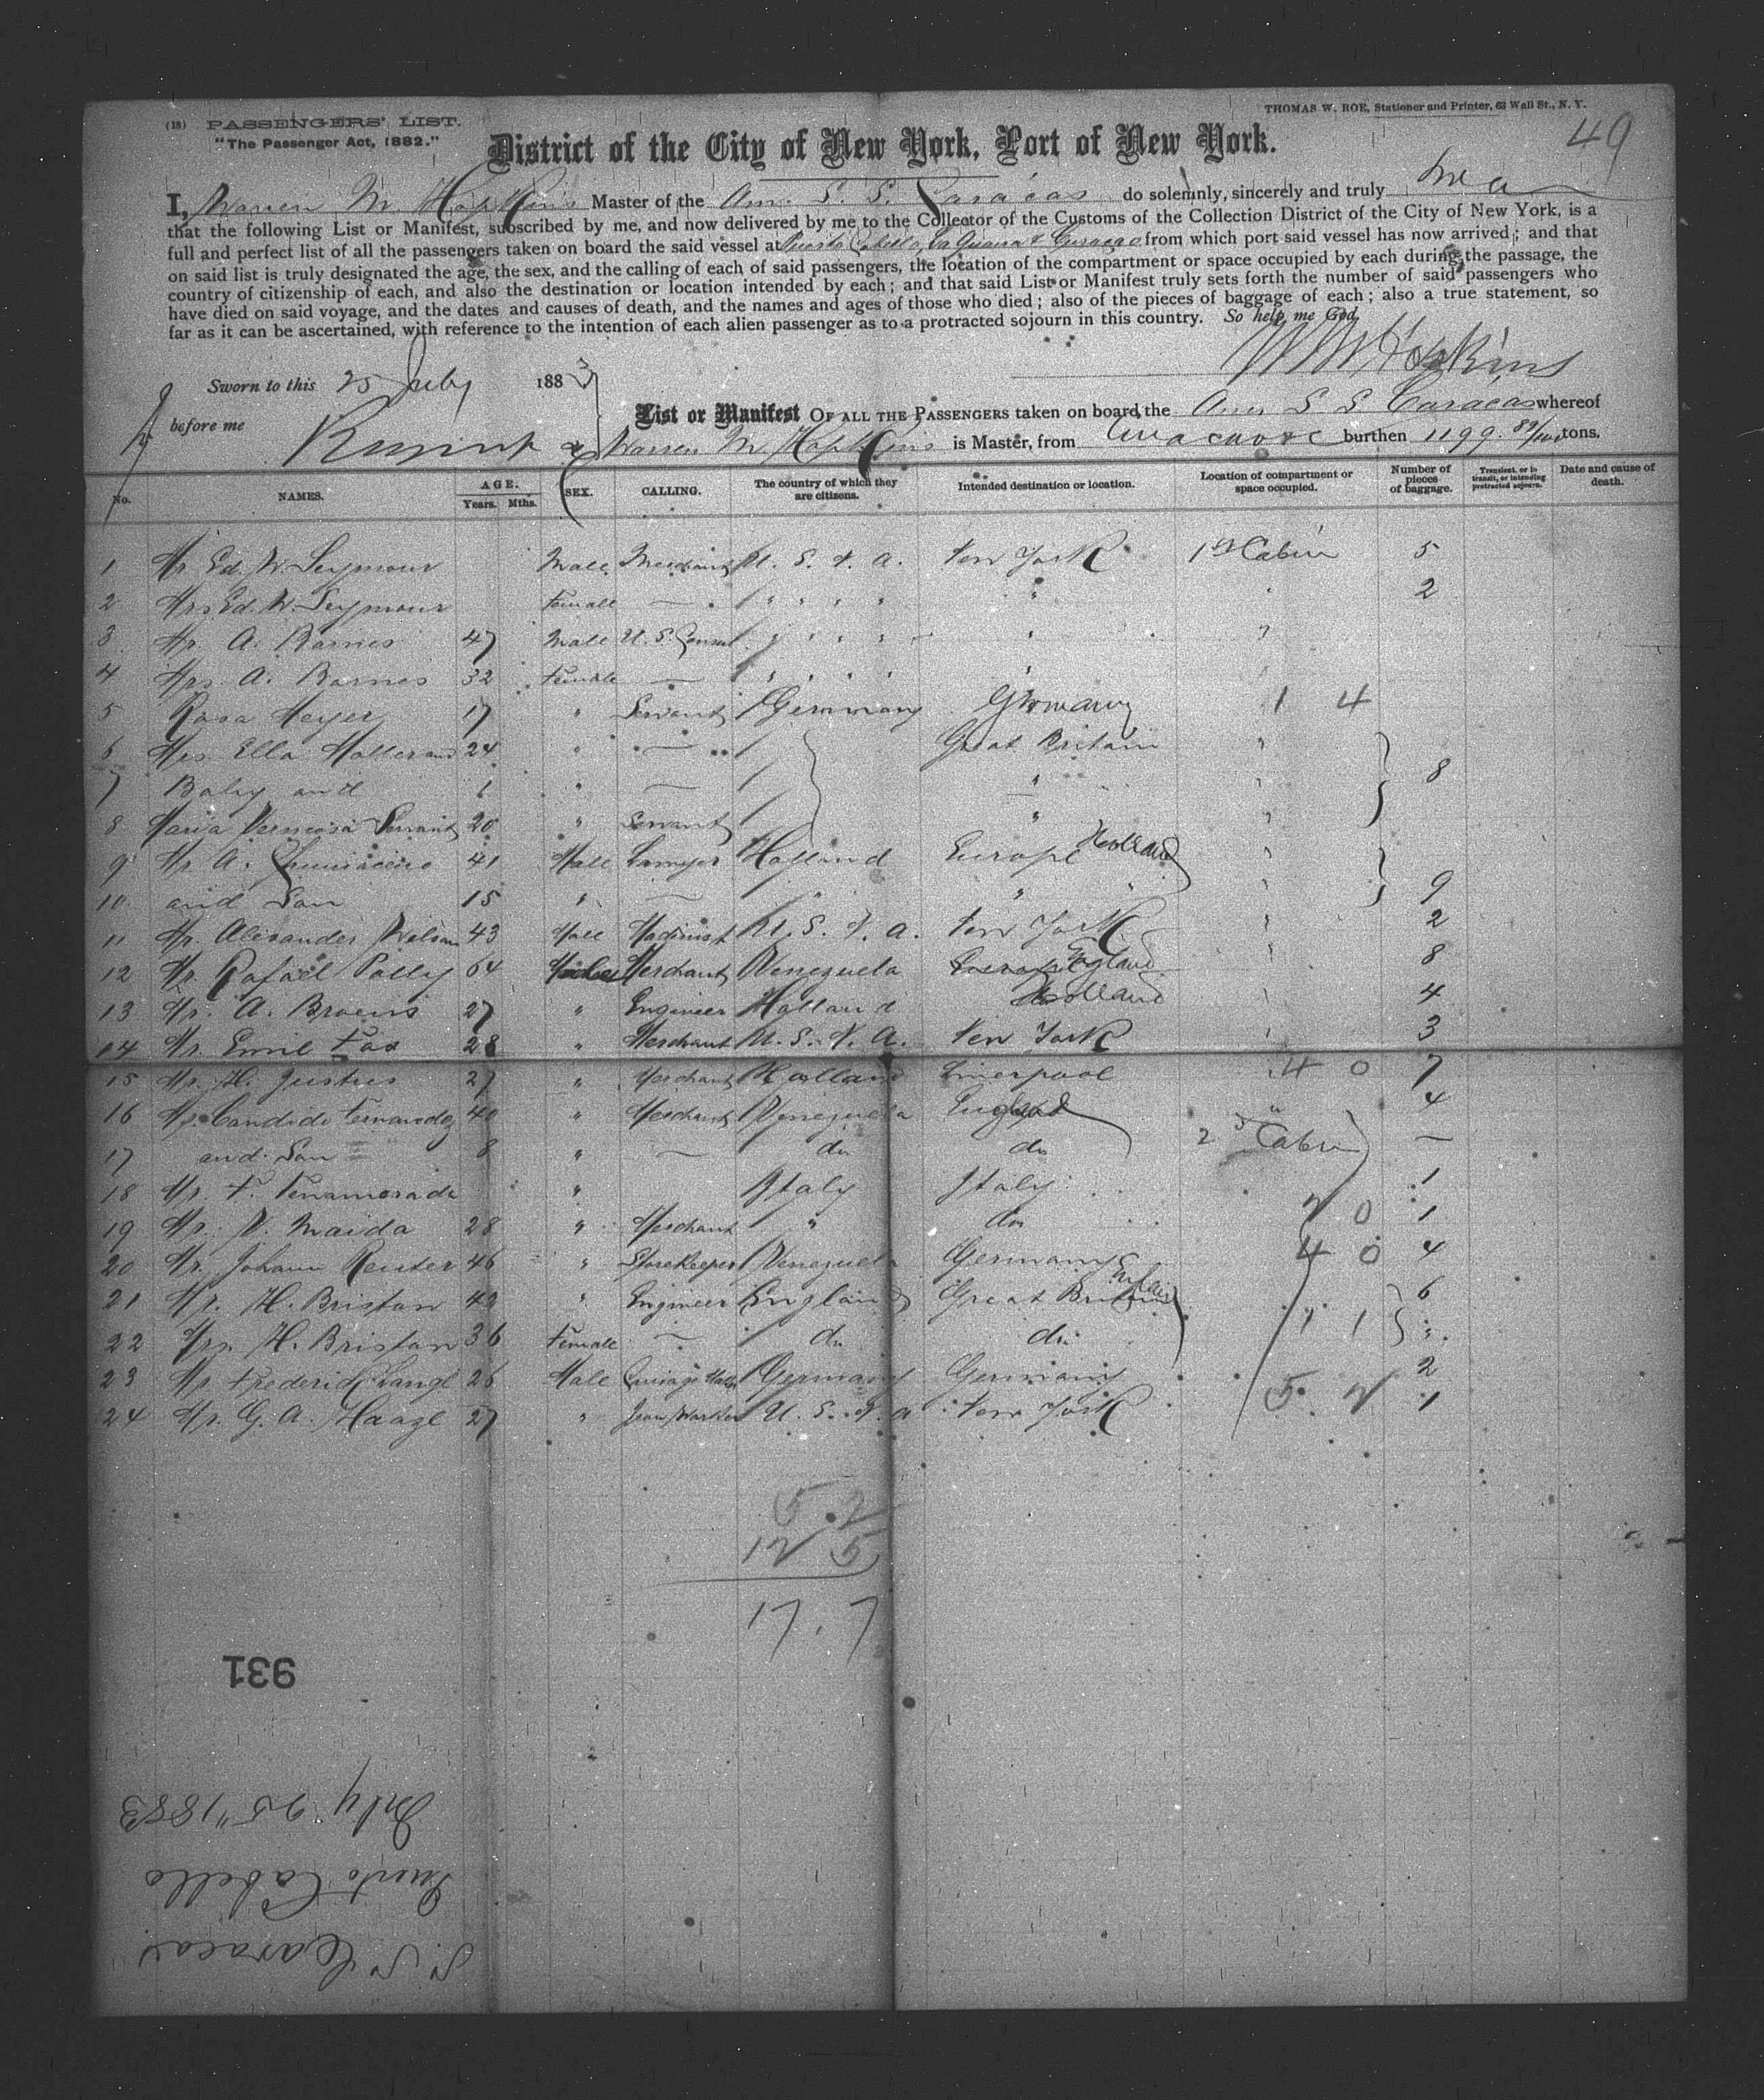 (18) PASSENGERS' LIST.
"The Passenger Act, 1882."
THOMAS W. ROE, Stationer and Printer, 63 Wall St., N. Y.
49
District of the City of New York, Port of New York.
I, Warren M. Hopkins Master of the Am. S. S. Caracas do solemnly, sincerely and truly
that the following List or Manifest, subscribed by me, and now delivered by me to the Collector of the Customs of the Collection District of the City of New York, is a
full and perfect list of all the passengers taken on board the said vessel at Puerto Cabello, La Guaira & Curacao from which port said vessel has now arrived; and that
on said list is truly designated the age, the sex, and the calling of each of said passengers, the location of the compartment or space occupied by each during the passage, the
country of citizenship of each, and also the destination or location intended by each; and that said List or Manifest truly sets forth the number of said passengers who
have died on said voyage, and the dates and causes of death, and the names and ages of those who died; also of the pieces of baggage of each; also a true statement, so
far as it can be ascertained, with reference to the intention of each alien passenger as to a protracted sojourn in this country. So help me God,
W M Hopkins
Sworn to this 25 July 1883
before me
List or Manifest OF ALL THE PASSENGERS taken on board the Am S S Caracas whereof
Warren M. Hopkins is Master, from burthen 1199. 89/100 tons.
No. NAMES. AGE. Years. Mths. SEX. CALLING. The country of which they are citizens. Intended destination or location. Location of compartment or space occupied. Number of pieces of baggage. Transient, or in transit, or intending protracted sojourn. Date and cause of death.
1 Mr Ed. W. Seymour Male Merchant U. S. of A. New York 1st Cabin 5
2 Mrs Ed. W. Seymour Female — " " " " " " 2
3 Mr. A. Barnes 47 Male U. S. Consul " " " " " "
4 Mrs. A. Barnes 32 Female — " " " " "
5 Rosa Meyer 17 " Servant Germany Germany 1 4
6 Mrs. Ella 24 " — Great Britain "
7 Baby and 1 " — " " 8
8 Maria Servant 20 " Servant " "
9 Mr A. 41 Male Lawyer Holland Europe Holland "
10 and Son 15 " — " " " 9
11 Mr. Alexander Wilson 43 Male Machinist U. S. of A. New York " 2
12 Mr. Rafael 64 Male Merchant Venezuela England " 8
13 Mr. A. 27 " Engineer Holland Holland " 4
14 Mr. Emil Fox 28 " Merchant U. S. of A. New York " 3
15 Mr. H. Justus 27 " Merchant Holland Liverpool 4 0 7
16 Mr. Candido 40 " Merchant Venezuela England " 4
17 and Son 8 " — do do 2d Cabin —
18 Mr. F. " Italy Italy 1
19 Mr. V. Maida 28 " Merchant " do 2 0 1
20 Mr. Johann Reuter 46 " Storekeeper Venezuela Germany 4 0 4
21 Mr. H. Bristan 42 " Engineer England Great Britain 6
22 Mrs. H. Bristan 36 Female — do do 1 1 "
23 Mr Frederick Langl 26 Male Germany Germany 2
24 Mr. G. A. Haagl 27 " Iron Worker U. S. of A New York 5. 2 1
5.2
12 5
17.7
931
July 25" 1883
Puerto Cabello
S. S. Caracas